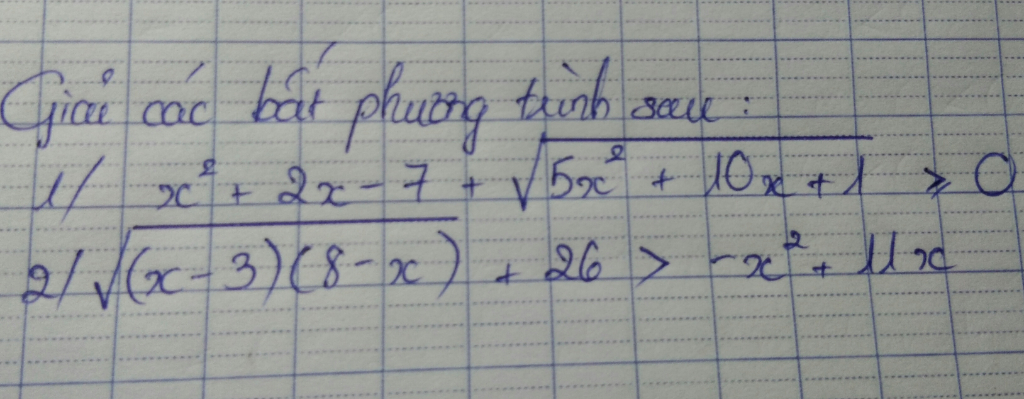 Giải các bất phương trình sau :
1/ x² + 2x - 7 + √(5x² + 10x + 1) ≥ 0
2/ √((x - 3)(8 - x)) + 26 > -x² + 11x